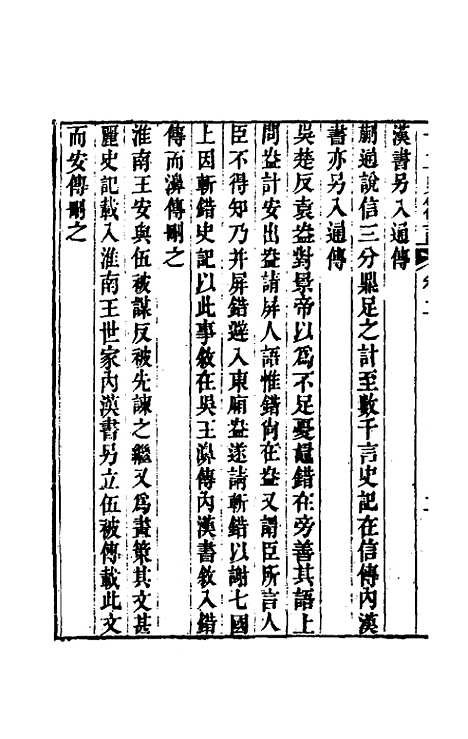 漢書另入通傳
蒯通說信三分鼎足之計至數千言史記在信傳內漢
書亦另入通傳
吳楚反袁盎對景帝以為不足憂鼂錯在旁善其語上
問盎計安出盎請屏人語惟錯尚在盎又謂臣所言人
臣不得知乃并屏錯錯避入東廂盎遂請斬錯以謝七國
上因斬錯史記以此事敘在吳王濞傳內漢書敘入錯
傳而濞傳刪之
淮南王安與伍被謀反被先諫之繼又為畫策其文甚
麗史記載入淮南王世家內漢書另立伍被傳載此文
而安傳刪之